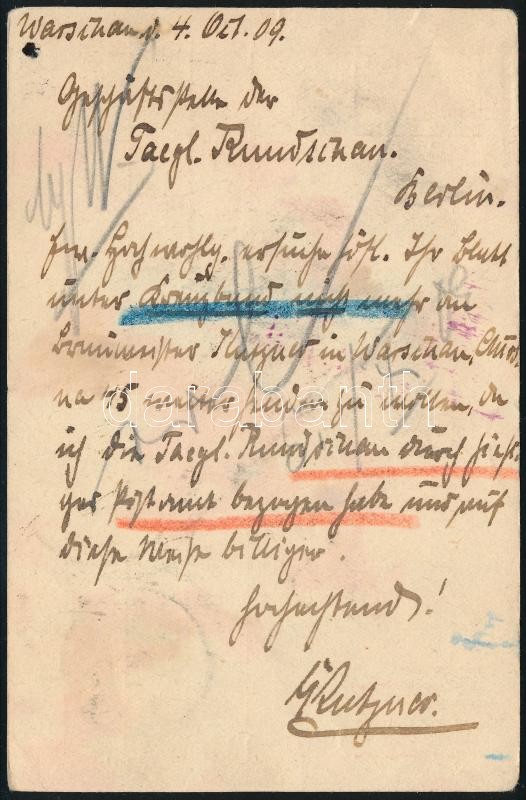 Warschau d. 4. Oct. 09.
Geschäftsstelle der
Taegl. Rundschau.
Berlin.
Ew. Hochwohlg. ersuche höfl. Ihr Blatt
unter Kreuzband nicht mehr an
Braumeister in Warschau,
na 45 weiter senden zu wollen, da
ich die Taegl. Rundschau durch hiesi-
ges Postamt bezogen habe und auf
diese Weise billiger.
Hochachtend!
darabanth